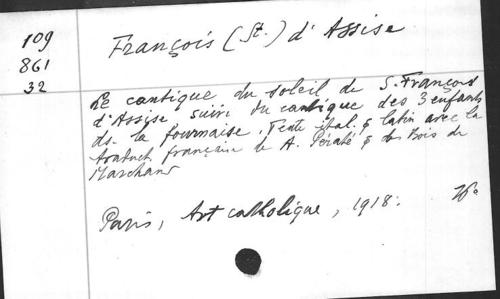 109
861
32
François (St.) d'Assise
Le cantique du soleil de S. François
d'Assise suivi du cantique des 3 enfants
ds. la fournaise. Texte ital. & latin avec la
traduct française de A. Pératé & de Bois de
Marchand
Paris, Art catholique, 1918.